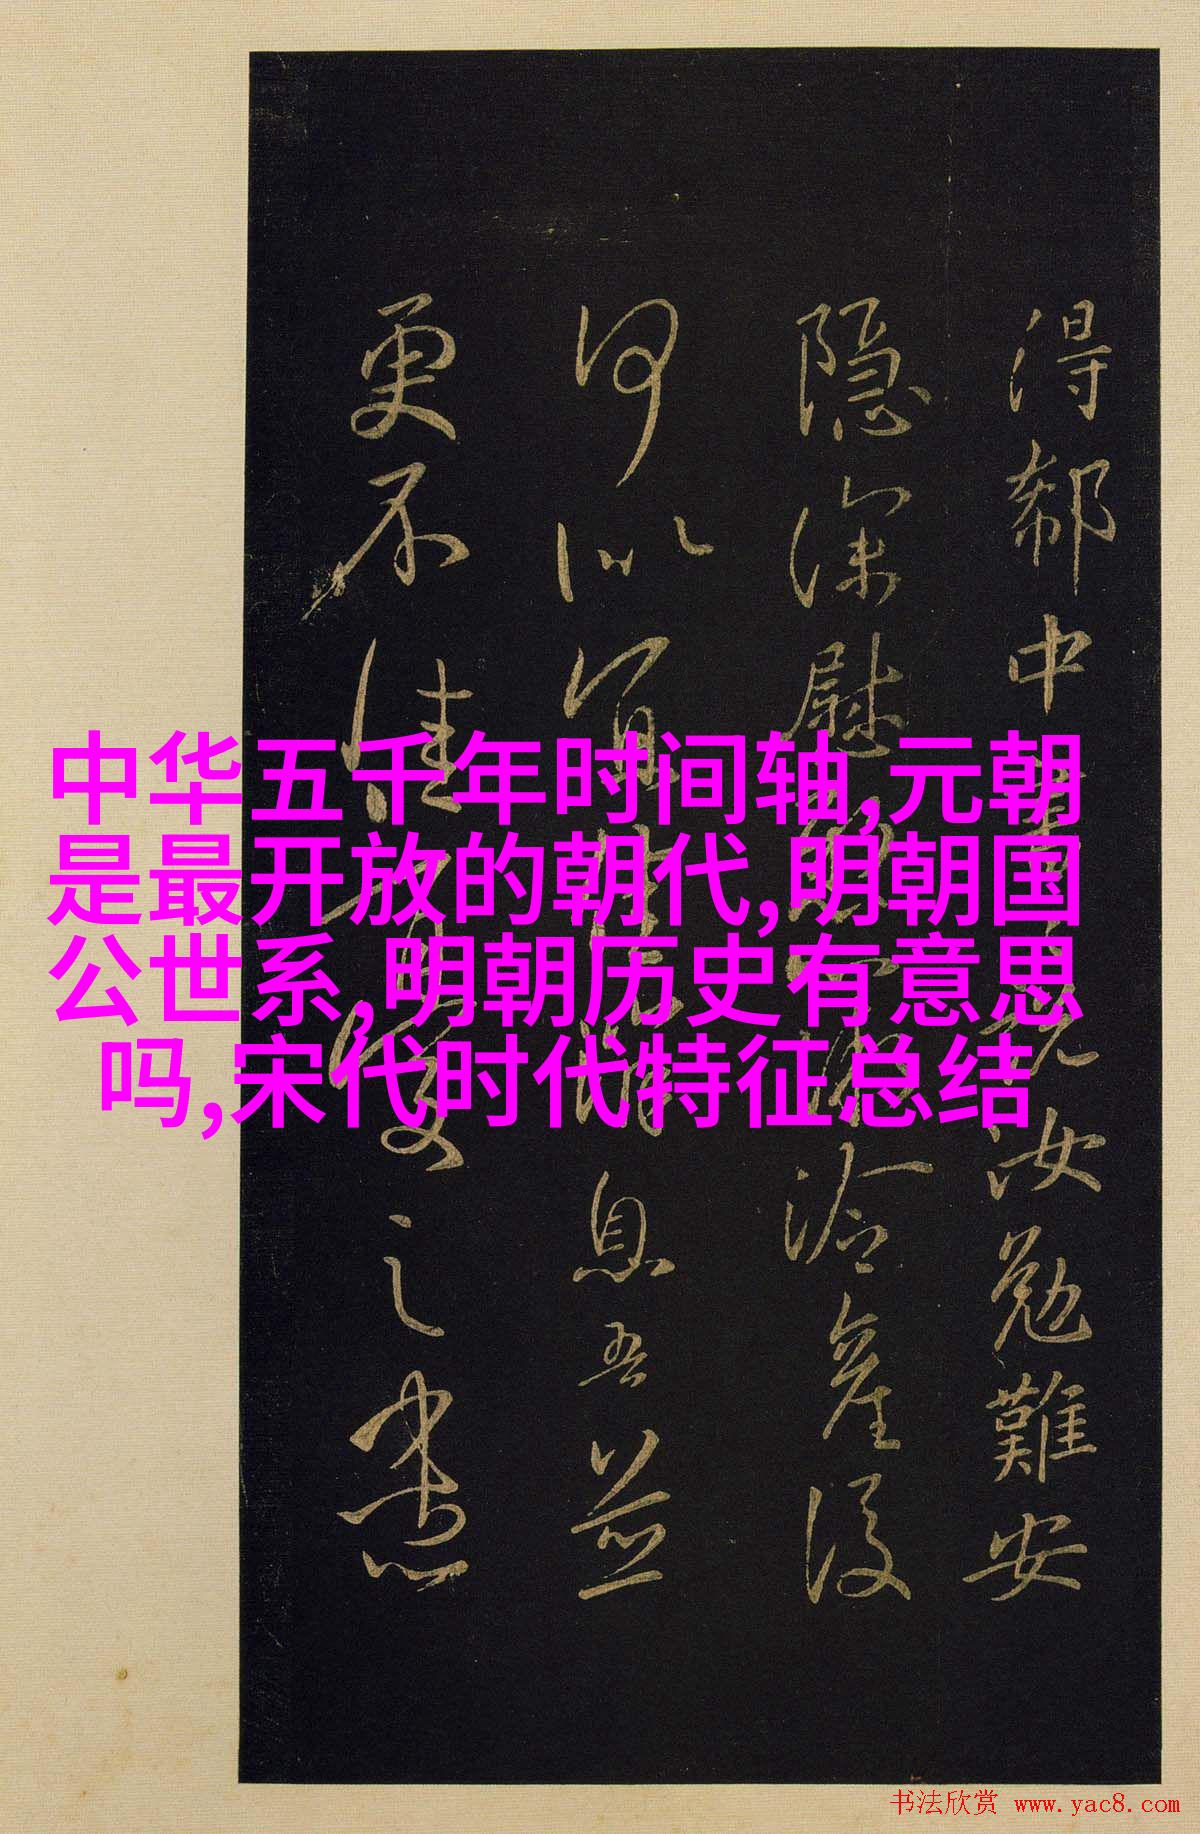 得郗中書
无汝勉難安
隐深慰
冷產後
何以
宜
息吾並
更不佳
憂之
中华五千年时间轴,元朝
是最开放的朝代,明朝国
公世系,明朝历史有意思
吗,宋代时代特征总结
书法欣赏 www.yac8.com